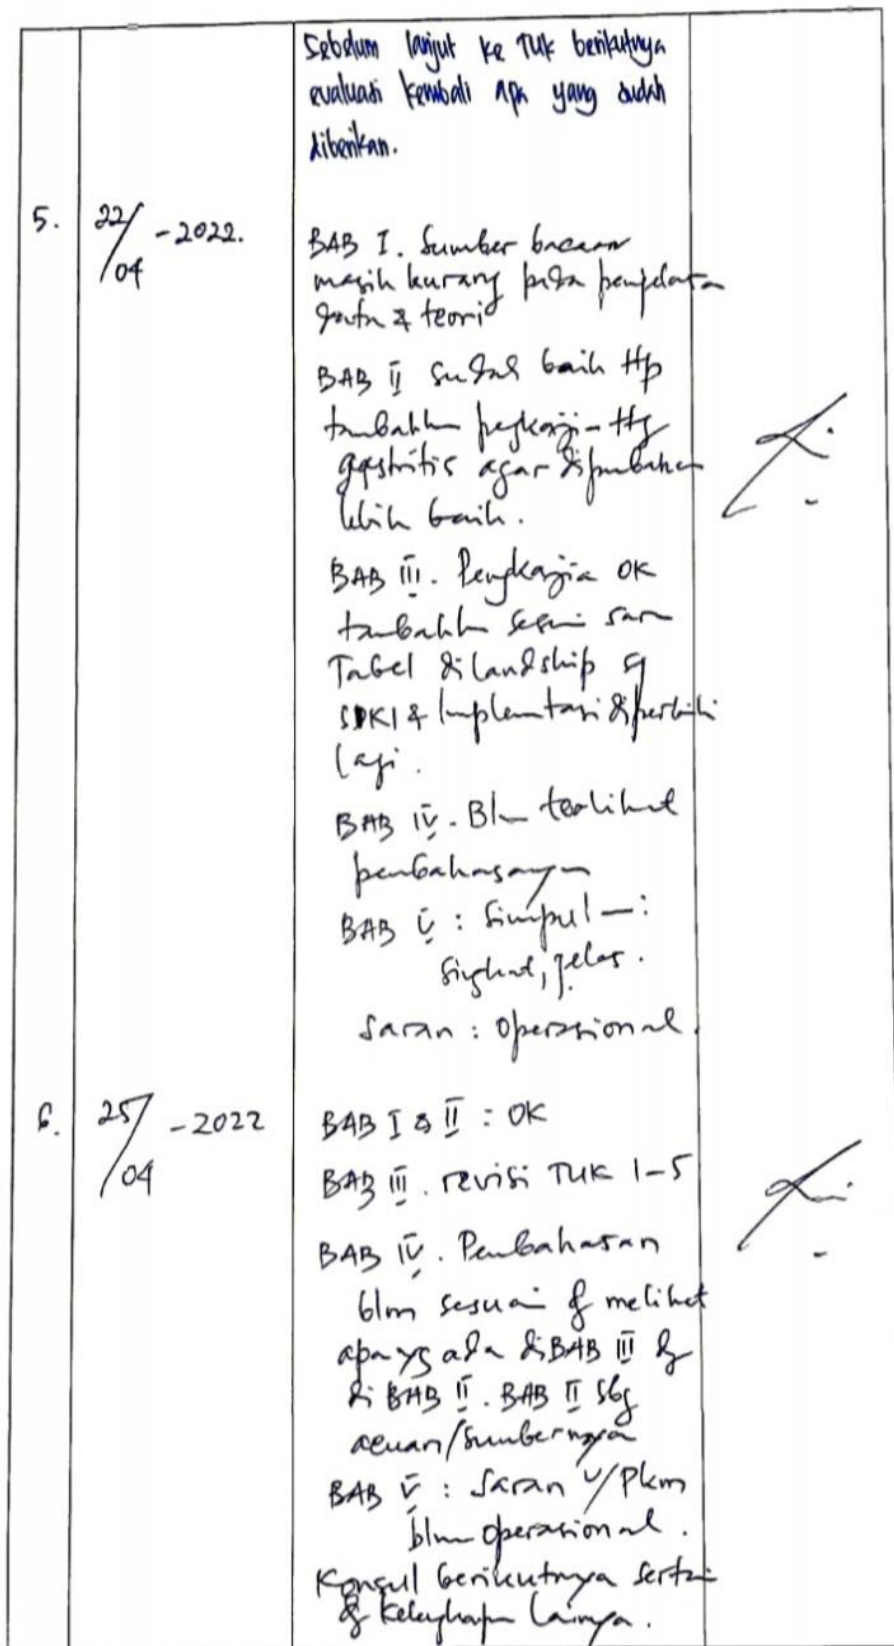 Sebelum lanjut ke TUK berikutnya
evaluasi kembali apa yang sudah
diberikan.
5.
22/04 -2022.
BAB I. Sumber bacaan
masih kurang pada penjelasan
data & teori
BAB II sudah baik Hp
tambahkan pengkaji-
gastritis agar
lebih baik.
BAB III. Pengkajia OK
tambahkan sesuai saran
Tabel dilandship
SDKI & Implementasi diperbaiki
lagi.
BAB IV. Blm terlihat
pembahasannya
BAB V : Simpul— :
Singkat, jelas.
Saran : Operasional.
6.
25/04 -2022
BAB I & II : OK
BAB III. revisi TUK 1-5
BAB IV. Pembahasan
blm sesuai dg melihat
apa yg ada di BAB III dg
di BAB II. BAB II sbg
acuan/sumbernya
BAB V : Saran u/Pkm
blm operasional.
Konsul berikutnya sertai
dg kelengkapan lainnya.